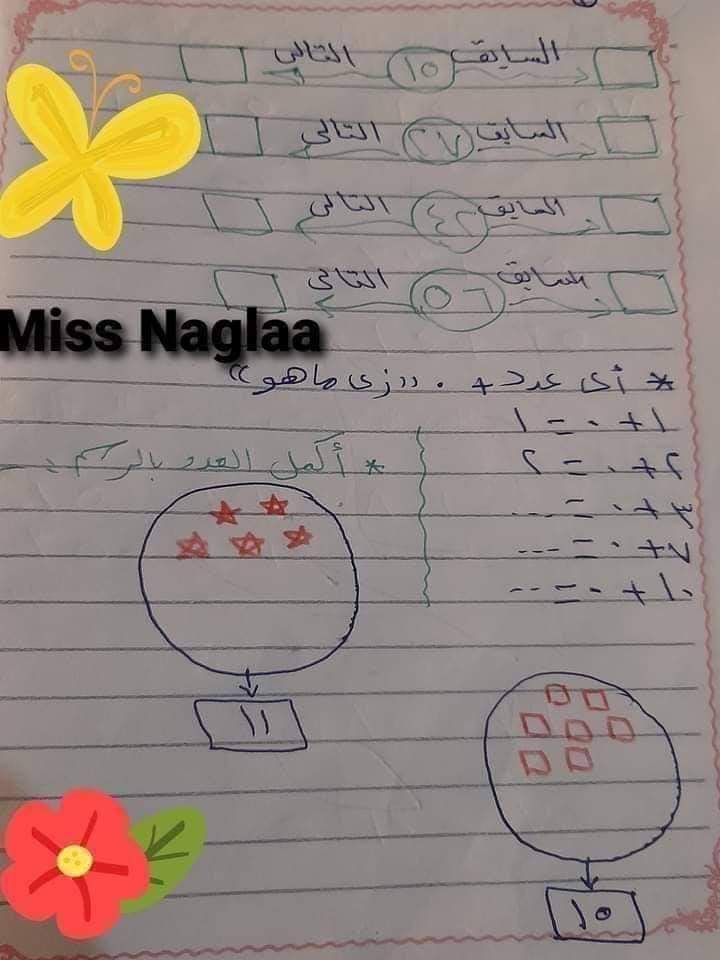 السابق ١٥ التالى
السابق ٢٧ التالى
السابق ٤٢ التالى
السابق ٥٦ التالى
Miss Naglaa
* أى عدد + ٠ "زى ما هو"
١ + ٠ = ١
٢ + ٠ = ٢
٣ + ٠ = ...
٧ + ٠ = ...
١٠ + ٠ = ...
* أكمل العدد بالرسم :-
١١
١٥